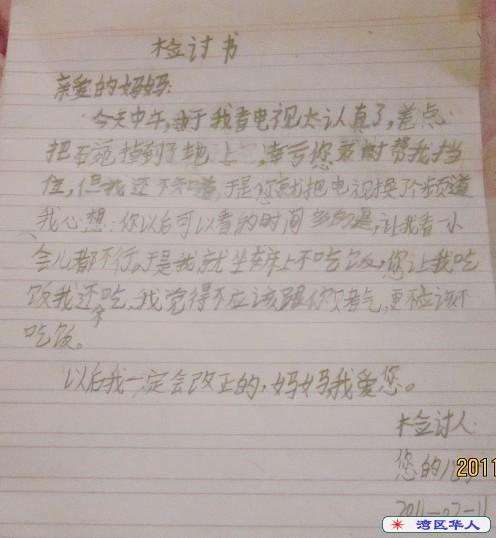 检讨书
亲爱的妈妈:
今天中午,由于我看电视太认真了,差点
把石苑掉到了地上,幸亏您及时帮我挡
住,但我还不知道,于是你就把电视换了个频道
我心想:你以后可以看的时间多的是,让我看一小
会儿都不行。于是我就坐在床上不吃饭,您让我吃
饭我还不吃,我觉得不应该跟你赌气,更不应该不
吃饭。
以后我一定会改正的,妈妈我爱您。
检讨人:
您的
2011-02-11
2011
湾区华人